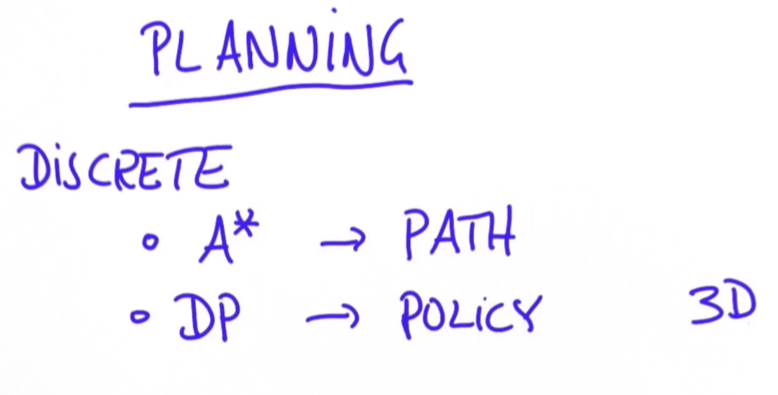 PLANNING
DiSCRETE
• A* → PATH
• DP → POLiCY 3D